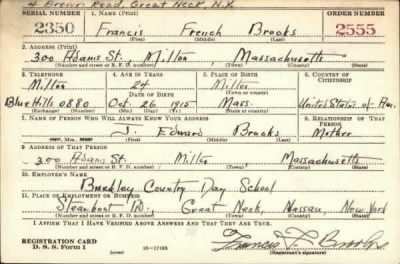 4 Brown Road, Great Neck, N.Y.
SERIAL NUMBER 1. NAME (Print) ORDER NUMBER
2350 Francis French Brooks 2555
(First) (Middle) (Last)
2. ADDRESS (Print)
300 Adams St. Milton, Massachusetts
(Number and street or R. F. D. number) (Town) (County) (State)
3. TELEPHONE 4. AGE IN YEARS 5. PLACE OF BIRTH 6. COUNTRY OF CITIZENSHIP
Milton 24 Milton
DATE OF BIRTH (Town or county)
Blue Hills 0880 Oct. 26 1915 Mass. United States of Am.
(Exchange) (Number) (Mo.) (Day) (Yr.) (State or country)
7. NAME OF PERSON WHO WILL ALWAYS KNOW YOUR ADDRESS 8. RELATIONSHIP OF THAT PERSON
J. Edward Brooks Mother
(Mr., Mrs., Miss) (First) (Middle) (Last)
9. ADDRESS OF THAT PERSON
300 Adams St. Milton Massachusetts
(Number and street or R. F. D. number) (Town) (County) (State)
10. EMPLOYER'S NAME
Buckley Country Day School
11. PLACE OF EMPLOYMENT OR BUSINESS
Steamboat Rd. Great Neck, Nassau, New York
(Number and street or R. F. D. number) (Town) (County) (State)
I AFFIRM THAT I HAVE VERIFIED ABOVE ANSWERS AND THAT THEY ARE TRUE.
REGISTRATION CARD
D. S. S. Form 1 (over) 16—17105 Francis F. Brooks
(Registrant's signature)